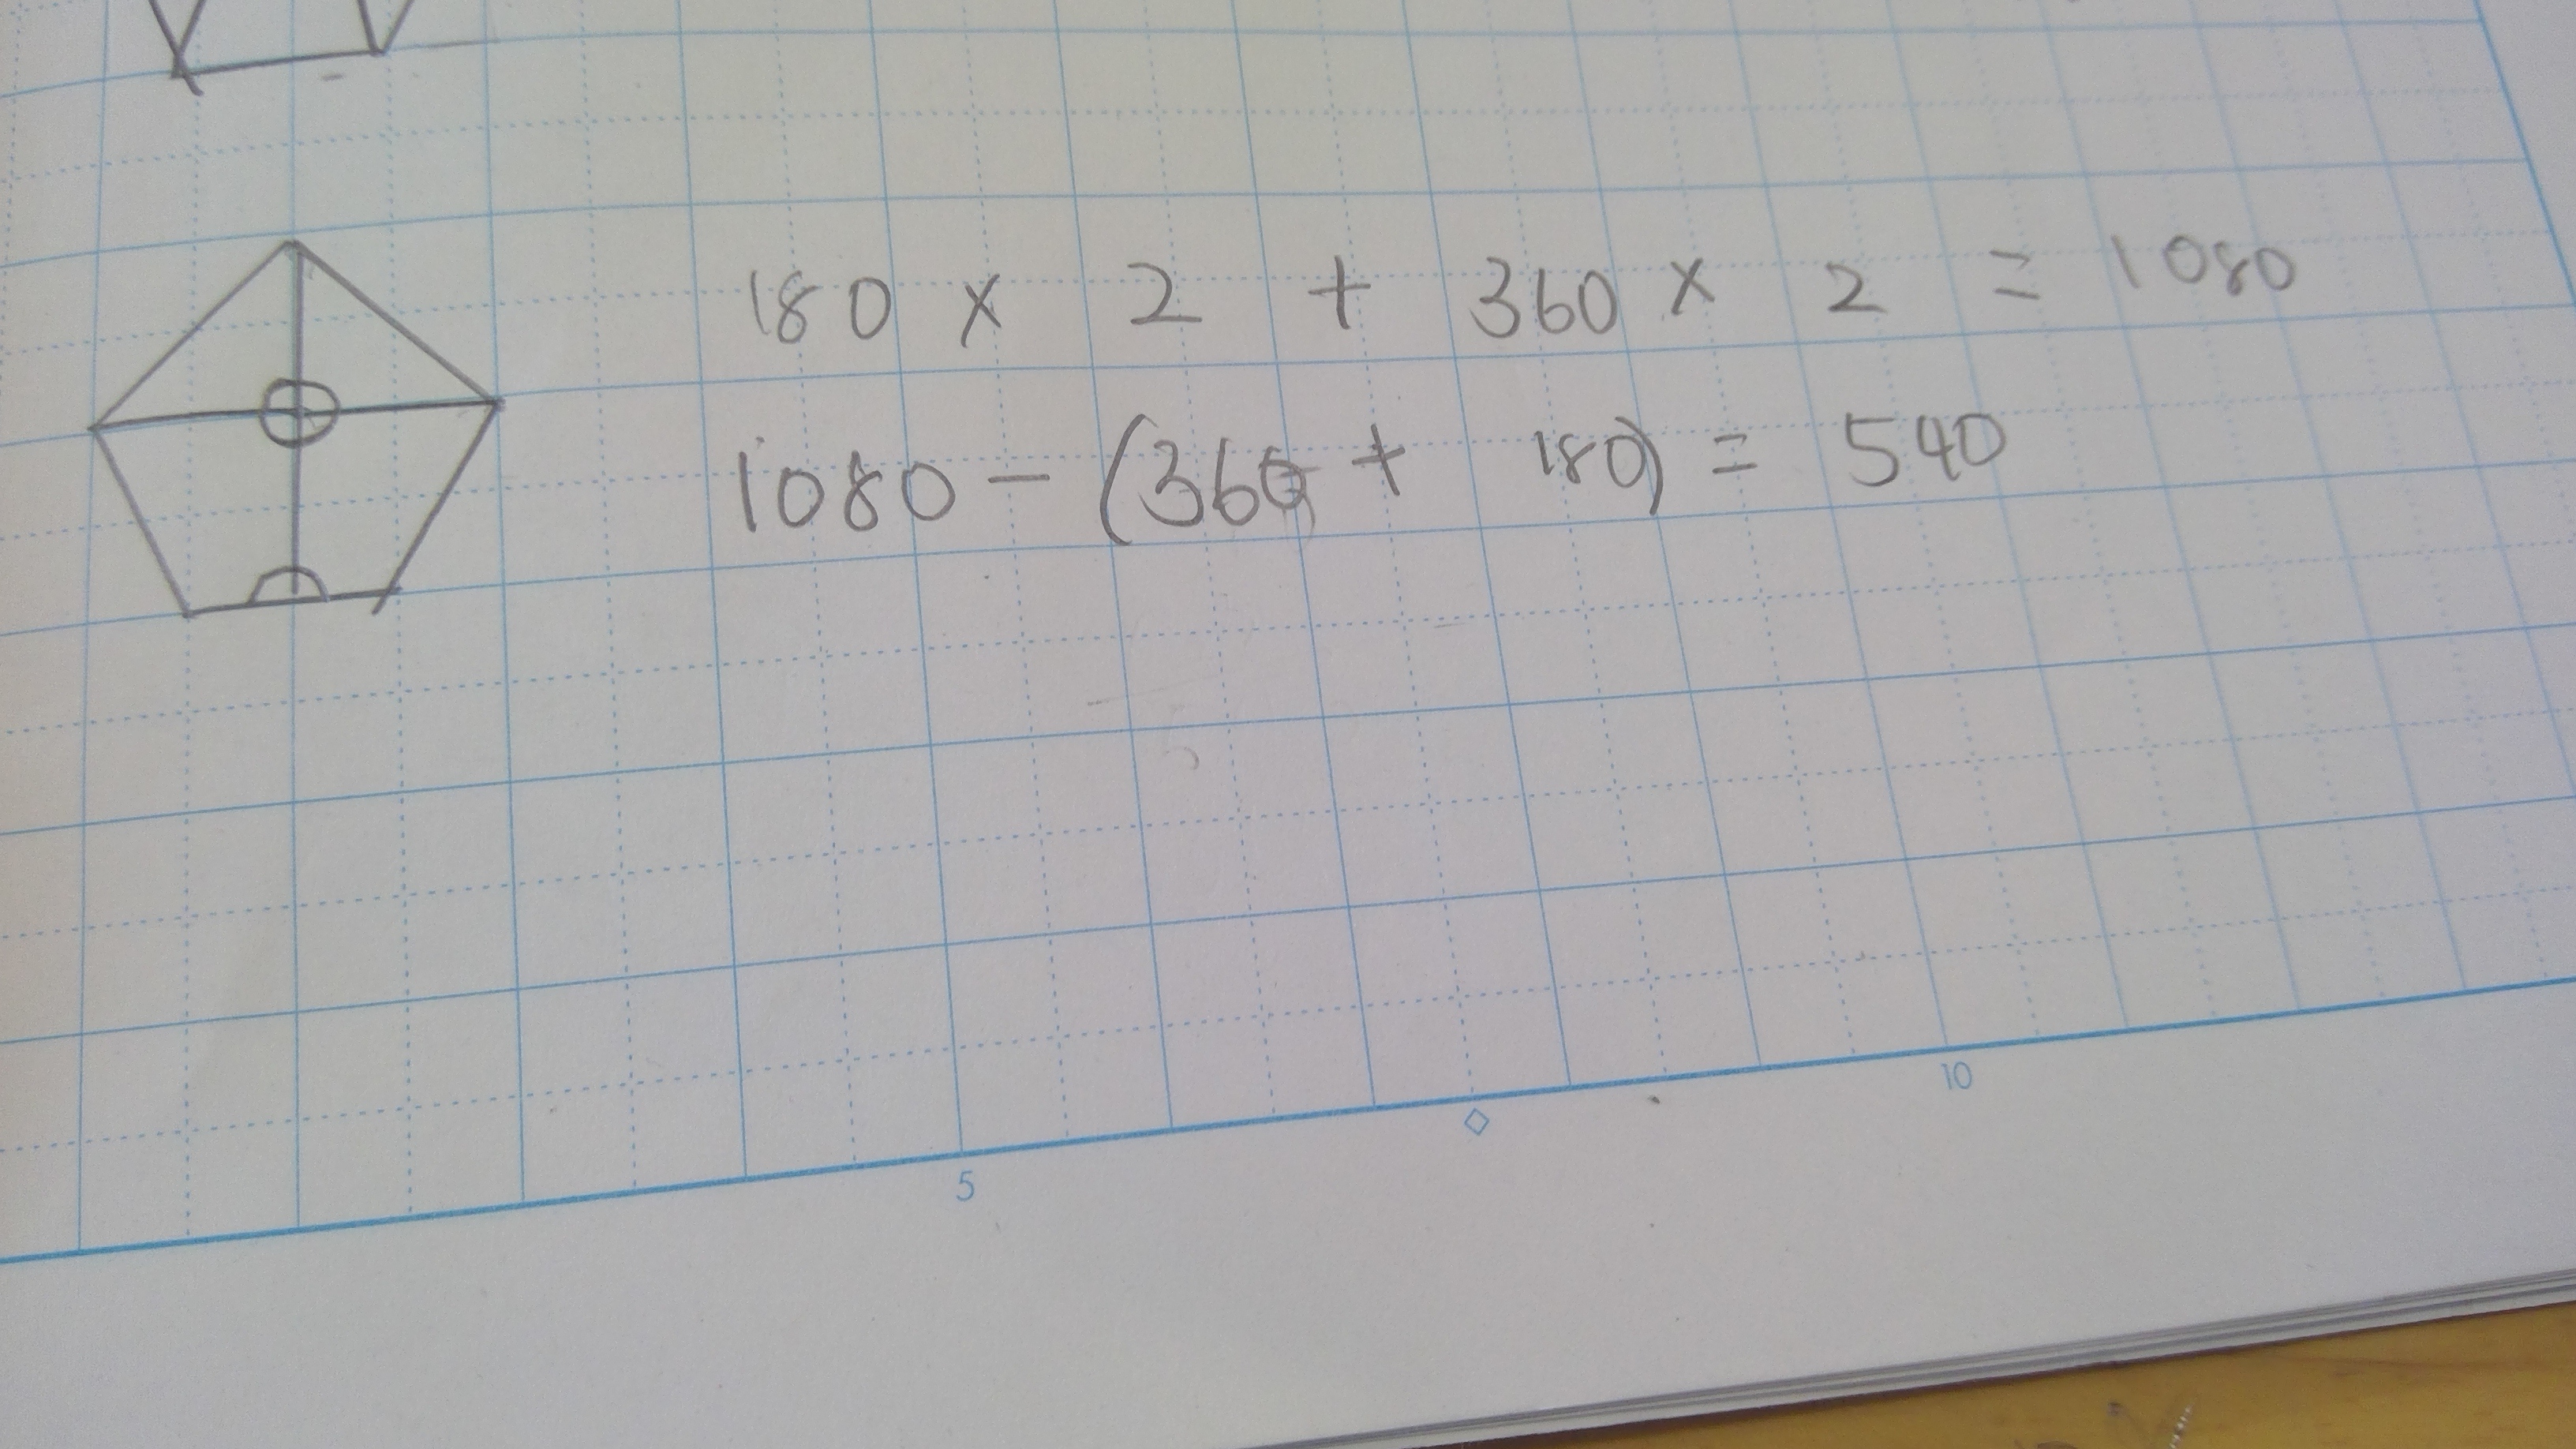 180 × 2 + 360 × 2 = 1080
1080 - (360 + 180) = 540
5
10